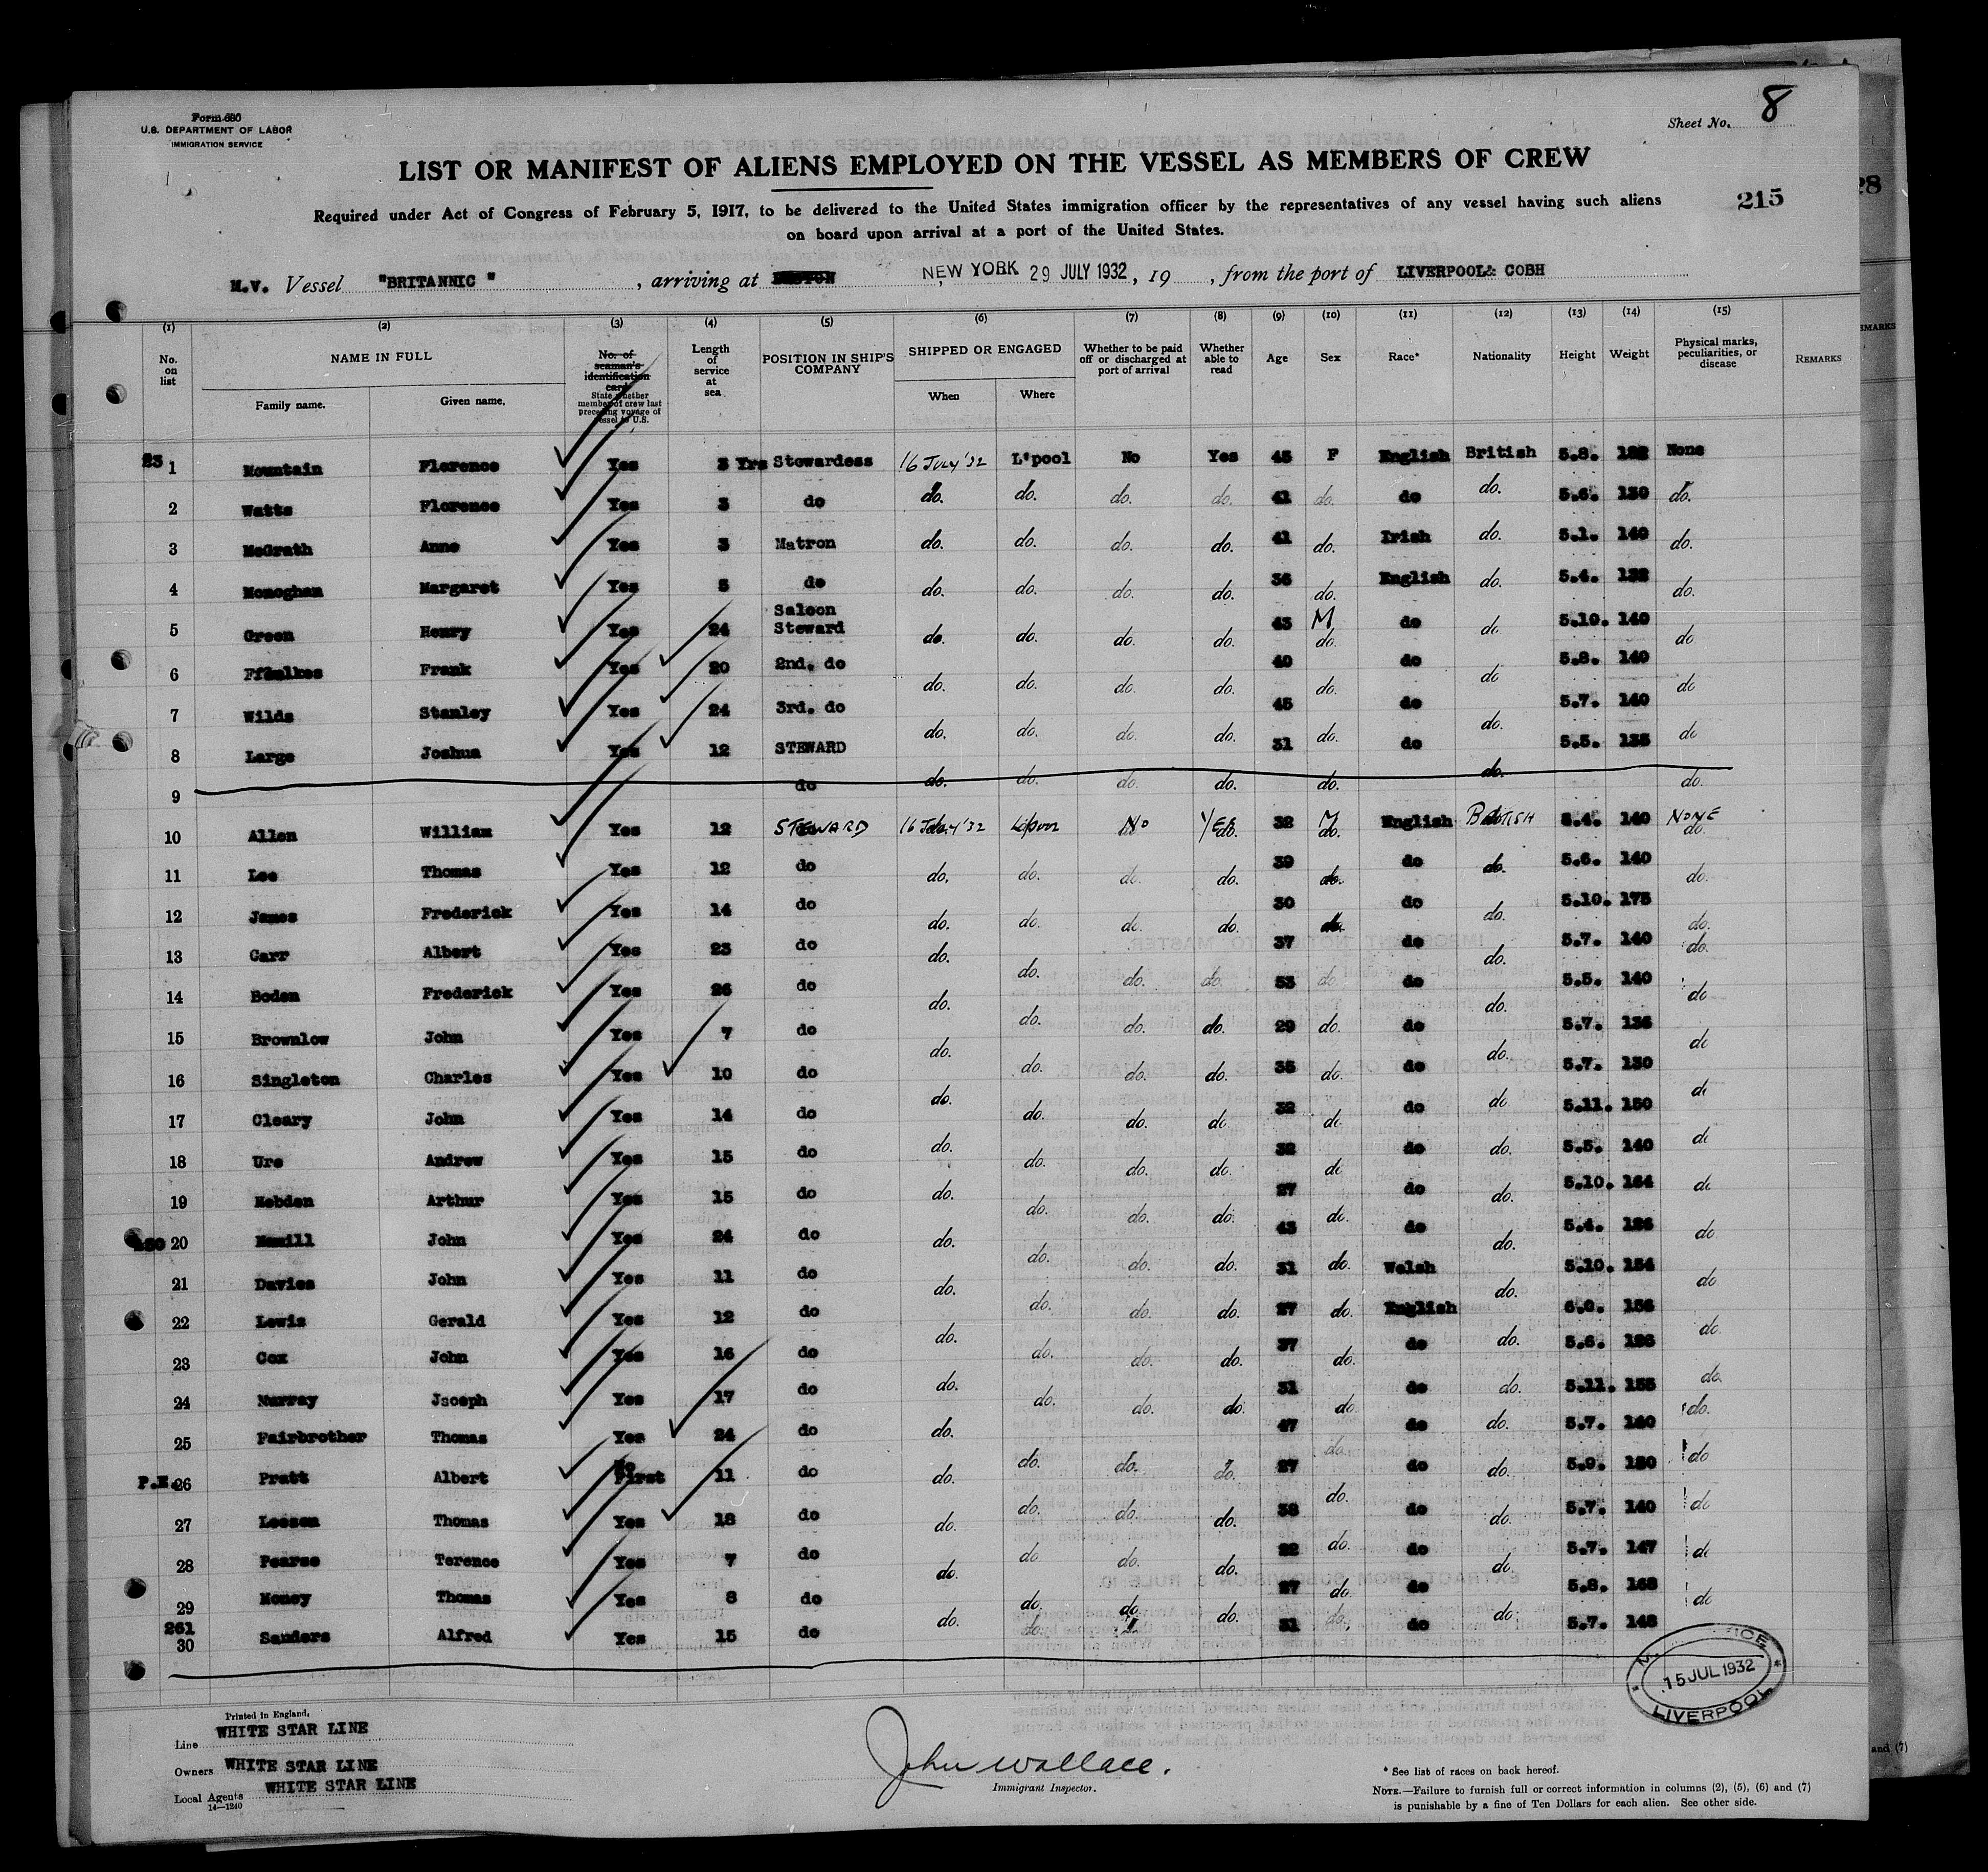 Form 680
U.S. DEPARTMENT OF LABOR
IMMIGRATION SERVICE
Sheet No. 8
LIST OR MANIFEST OF ALIENS EMPLOYED ON THE VESSEL AS MEMBERS OF CREW
215
Required under Act of Congress of February 5, 1917, to be delivered to the United States immigration officer by the representatives of any vessel having such aliens
on board upon arrival at a port of the United States.
M.V. Vessel "BRITANNIC", arriving at BOSTON NEW YORK 29 JULY 1932, 19 , from the port of LIVERPOOL & COBH
(1) (2) (3) (4) (5) (6) (7) (8) (9) (10) (11) (12) (13) (14) (15)
No. on list NAME IN FULL Family name. Given name. No. of seaman's identification card State whether member of crew last preceding voyage of vessel to U.S. Length of service at sea POSITION IN SHIP'S COMPANY SHIPPED OR ENGAGED When Where Whether to be paid off or discharged at port of arrival Whether able to read Age Sex Race* Nationality Height Weight Physical marks, peculiarities, or disease REMARKS
23 1 Mountain Florence Yes 3 Yrs Stewardess 16 July '32 L'pool No Yes 45 F English British 5.8. None
2 Watts Florence Yes 3 do do. do. do. do. 41 do. do do. 5.6. 130 do.
3 McGrath Anne Yes 3 Matron do. do. do. do. 41 do. Irish do. 5.1. 140 do.
4 Monoghan Margaret Yes 5 do do. do. do. do. 36 do. English do. 5.4. 132 do.
5 Green Henry Yes 24 Saloon Steward do. do. do. do. 43 M do. do do 5.10. 140 do
6 Ffoulkes Frank Yes 20 2nd. do do. do. do. do. 40 do. do do 5.8. 140 do
7 Wilds Stanley Yes 24 3rd. do do. do. do. do. 45 do. do do. 5.7. 140 do
8 Large Joshua Yes 12 STEWARD do. do. do. do. 31 do. do do. 5.5. 135 do.
9 do
10 Allen William Yes 12 STEWARD 16 July '32 L'pool No YES 32 M English BRITISH 5.4. 140 NONE
11 Lee Thomas Yes 12 do do. do. do. do. 39 do. do do. 5.6. 140 do.
12 James Frederick Yes 14 do do. do. do. do. 30 do. do do. 5.10. 175 do.
13 Carr Albert Yes 23 do do. do. do. do. 37 do. do do. 5.7. 140 do.
14 Boden Frederick Yes 26 do do. do. do. do. 53 do. do do. 5.5. 140 do
15 Brownlow John Yes 7 do do. do. do. do. 29 do. do do. 5.7. 136 do
16 Singleton Charles Yes 10 do do. do. do. do. 35 do. do do 5.7. 130 do
17 Cleary John Yes 14 do do. do. do. do. 32 do. do do. 5.11. 150 do
18 Ure Andrew Yes 15 do do. do. do. do. 32 do do do. 5.5. 140 do
19 Hebden Arthur Yes 15 do do. do. do. do. 27 do. do do. 5.10. 164 do
20 John Yes 24 do do. do. do. do. 43 do. do do. 5.4. 126 do
21 Davies John Yes 11 do do. do. do. do. 31 do. Welsh do. 5.10. 154 do
22 Lewis Gerald Yes 12 do do. do. do. do. 27 do. English do. 6.0. 156 do
23 Cox John Yes 16 do do. do. do. do. 37 do. do do. 5.6. 126 do.
24 Murray Joseph Yes 17 do do. do. do. do. 31 do. do do. 5.11. 155 do.
25 Fairbrother Thomas Yes 24 do do. do. do. do. 47 do. do do. 5.7. 140 do
P.E. 26 Pratt Albert No First 11 do do. do. do. do. 27 do. do do. 5.9. 150 do
27 Leeson Thomas Yes 18 do do. do. do. do. 38 do. do do. 5.7. 140 do
28 Pearse Terence Yes 7 do do. do. do. do. 22 do. do do. 5.7. 147 do
29 Money Thomas Yes 8 do do. do. do. do. 27 do. do do. 5.8. 168 do
261 30 Sanders Alfred Yes 15 do 31 do 5.7. 148
15 JUL 1932
LIVERPOOL
Printed in England.
Line WHITE STAR LINE
Owners WHITE STAR LINE
Local Agents WHITE STAR LINE
14—1240
John Wallace.
Immigrant Inspector.
* See list of races on back hereof.
NOTE.—Failure to furnish full or correct information in columns (2), (5), (6) and (7)
is punishable by a fine of Ten Dollars for each alien. See other side.
and (7)